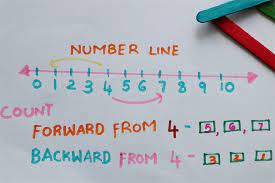 NUMBER LINE
0 1 2 3 4 5 6 7 8 9 10
COUNT
FORWARD FROM 4 - 5, 6, 7
BACKWARD FROM 4 - 3 2 1